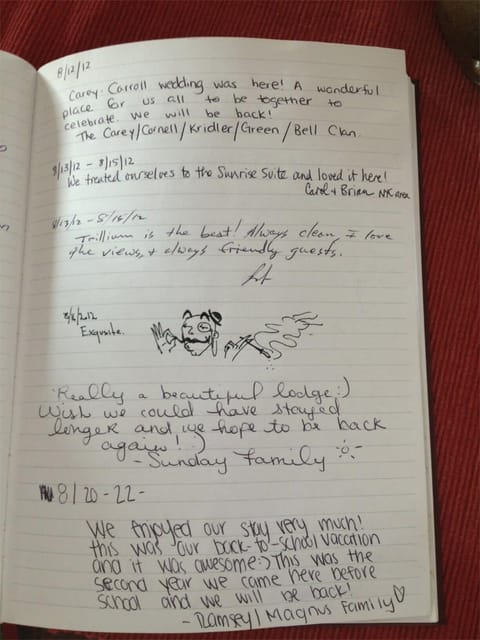 8/12/12
Carey-Carroll wedding was here! A wonderful
place for us all to be together to
celebrate. We will be back!
The Carey/Cornell/Kridler/Green/Bell Clan.
8/13/12 - 8/15/12
We treated ourselves to the Sunrise Suite and loved it here!
Carol + Brian
8/13/12 - 8/15/12
Trillium is the best! Always clean, I love
the views, + always friendly guests.
8/16/2012
Exquisite.
Really a beautiful lodge :)
Wish we could have stayed
longer and we hope to be back
again! :)
- Sunday Family
8/20-22-
We enjoyed our stay very much!
this was our back-to-school vacation
and it was awesome :) This was the
second year we came here before
school and we will be back!
- Ramsey/Magnus Family